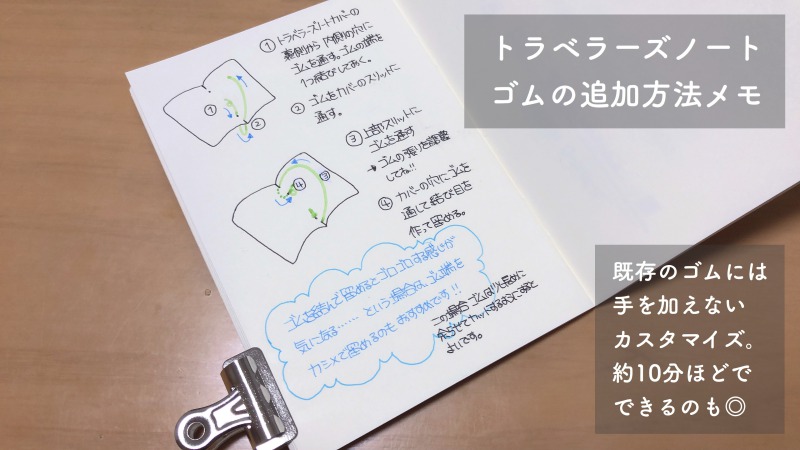 トラベラーズノート
ゴムの追加方法メモ
① トラベラーズノートカバーの
裏側から 内側の穴に
ゴムを通す。ゴムの端を
1つ結びしておく。
② ゴムをカバーのスリットに
通す。
①
②
③ 上部スリットに
ゴムを通す
→ ゴムの張りを調整
してね!!
④ カバーの穴にゴムを
通して結び目を
作って留める。
④
③
ゴムを結んで留めるとゴロゴロする感じが
気になる…… という場合は、ゴム端を
カシメで留めるのもおすすめです!!
この場合ゴムは少し長めに
余らせてカットするようにすると
よいです。
既存のゴムには
手を加えない
カスタマイズ。
約10分ほどで
できるのも◎